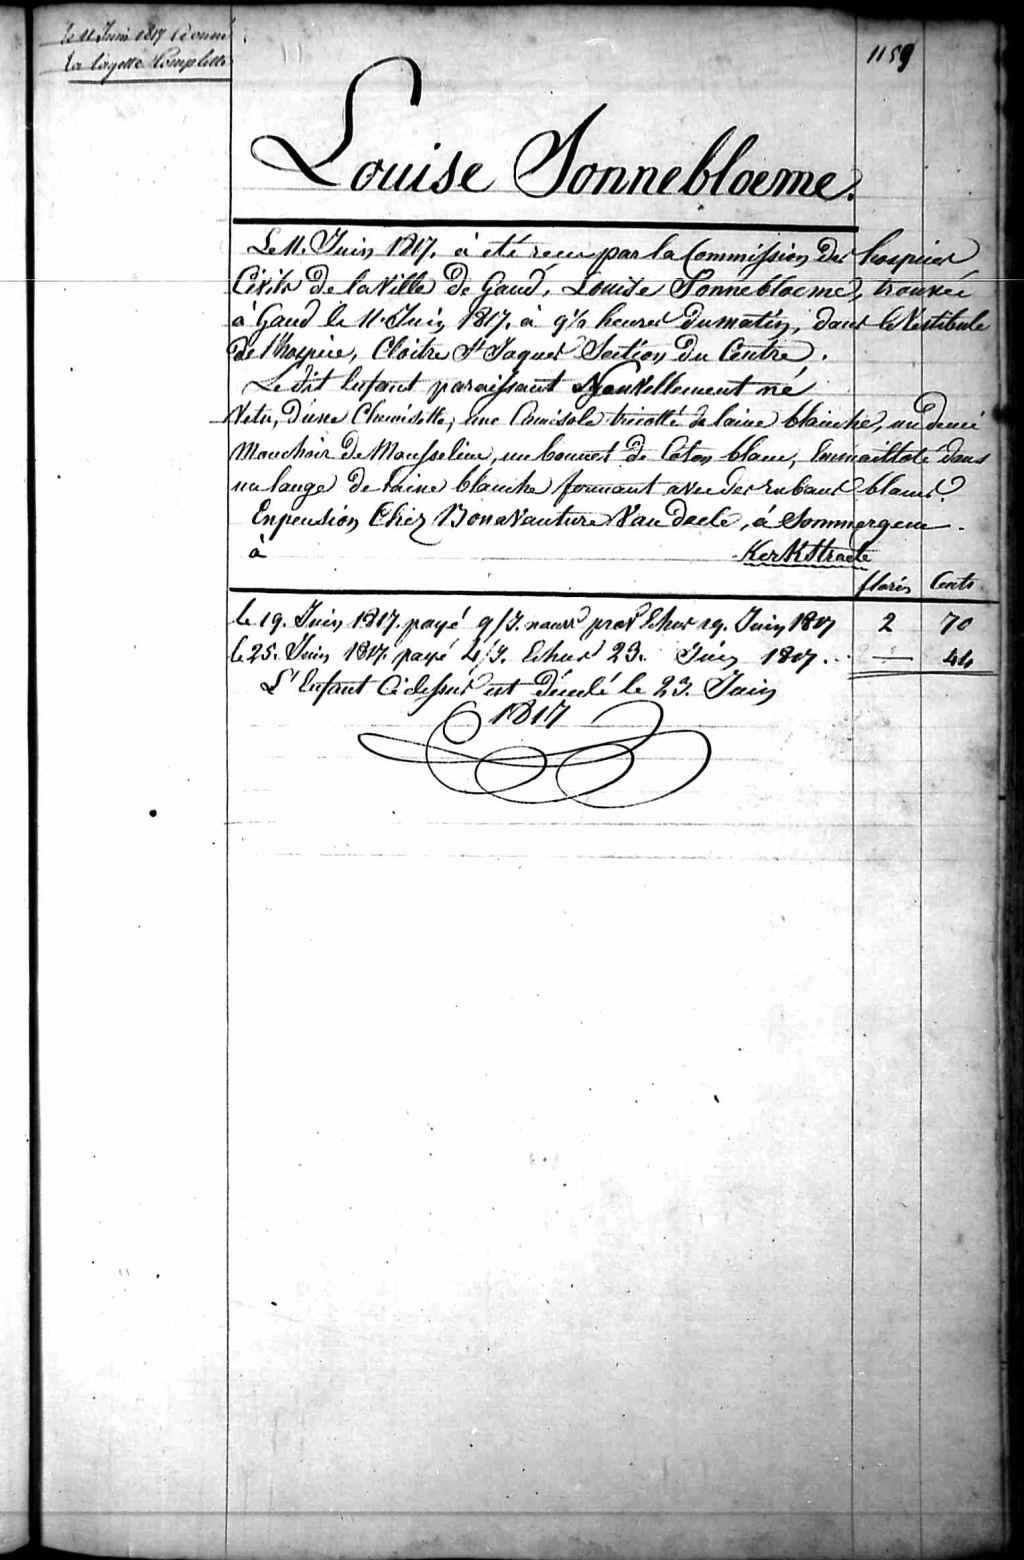 le 11 Juin 1817 donné
la layette Complette
1159
Louise Sonnebloeme.
Le 11. Juin 1817. à été recu par la Commission des hospices
Civils de la Ville de Gand, Louise Sonnebloeme, trouvée
à Gand le 11. Juin 1817. à 9½ heures du matin, dans le Vestibule
de l'hospice, Cloitre St Jaques Section du Centre.
Le dit Enfant paraissant Nouvellement né
Vetu, d'une Chemisette, une Camisole tricotté de laine blanche, un demi
Mouchoir de Mousseline, un bonnet de Coton blanc, Emmailloté dans
un lange de laine blanche formant avec des rubans blancs.
En pension Chez Bonavanture Van daele, à Sommergem.
à Kerkstraete
florin Cents
le 19. Juin 1817. payé 9/J. Echus 19. Juin 1817 2 70
le 25. Juin 1817. payé 4/J. Echus 23. Juin 1817. — 44
L'Enfant Cidessus est décédé le 23. Juin
1817